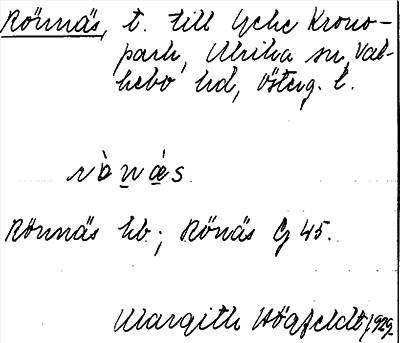 Rönnäs, t. till Yche Krono-
park, Ulrika sn, Val-
kebo hd, Österg. l.
rò̀nǽs
Rönnäs hb.; Rönäs G 45.
Margith Högfeldt 1929.